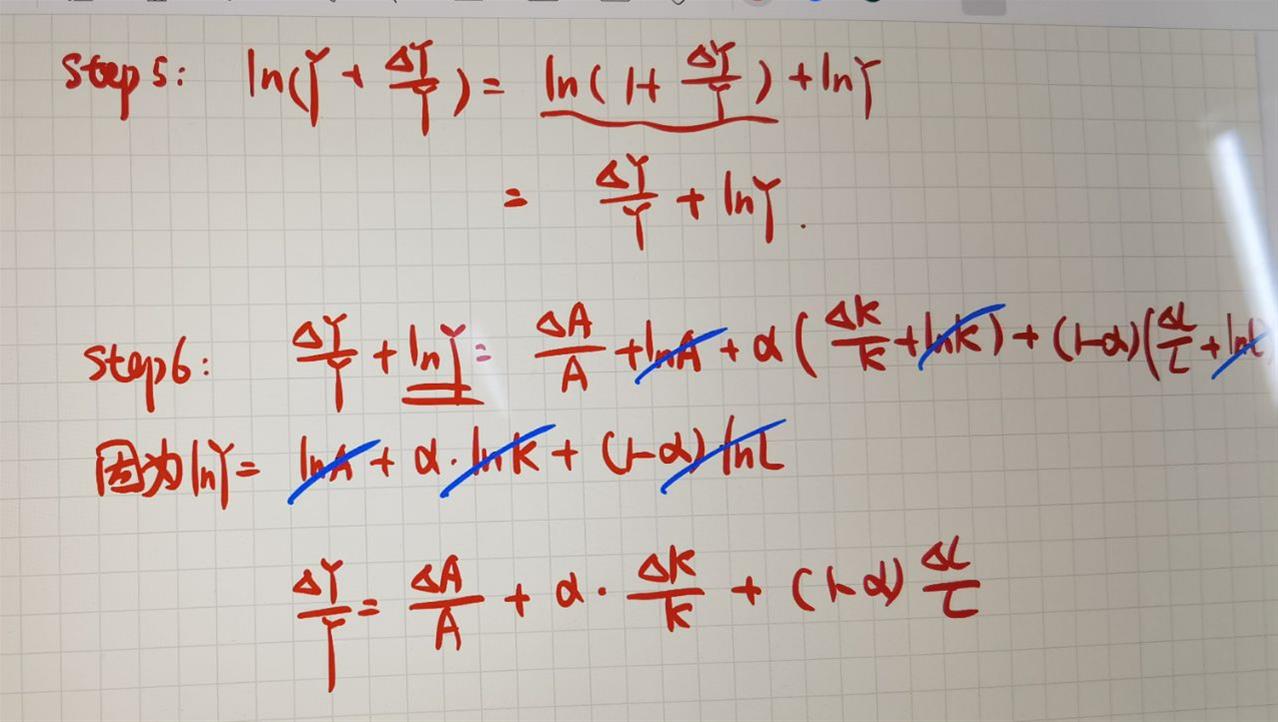 step 5: ln(Y + ΔY/Y) = ln(1+ ΔY/Y) + lnY
= ΔY/Y + lnY.
step 6: ΔY/Y + lnY = ΔA/A + lnA + α(Δk/k + lnk) + (1-α)(ΔL/L + lnL
因为 lnY = lnA + α·lnk + (1-α) lnL
ΔY/Y = ΔA/A + α·Δk/k + (1-α) ΔL/L